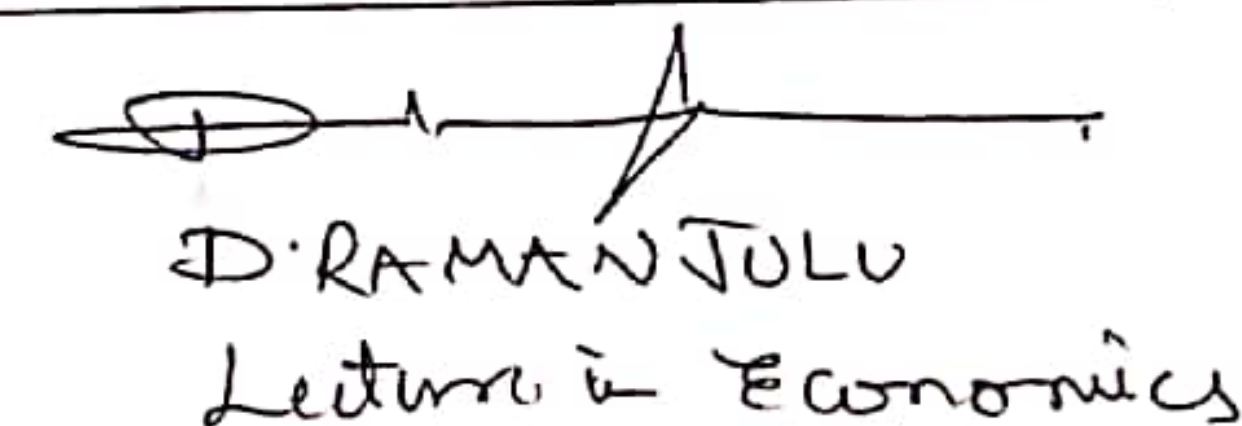 D. RAMANJULU
Lecturer in Economics